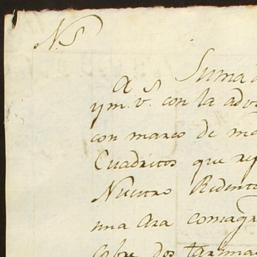 NS
A S Suma
y m. v. con la adv
con marco de m
Cuadritos que re
Nuestro Redent
una Ara consagr
sobre dos tarima